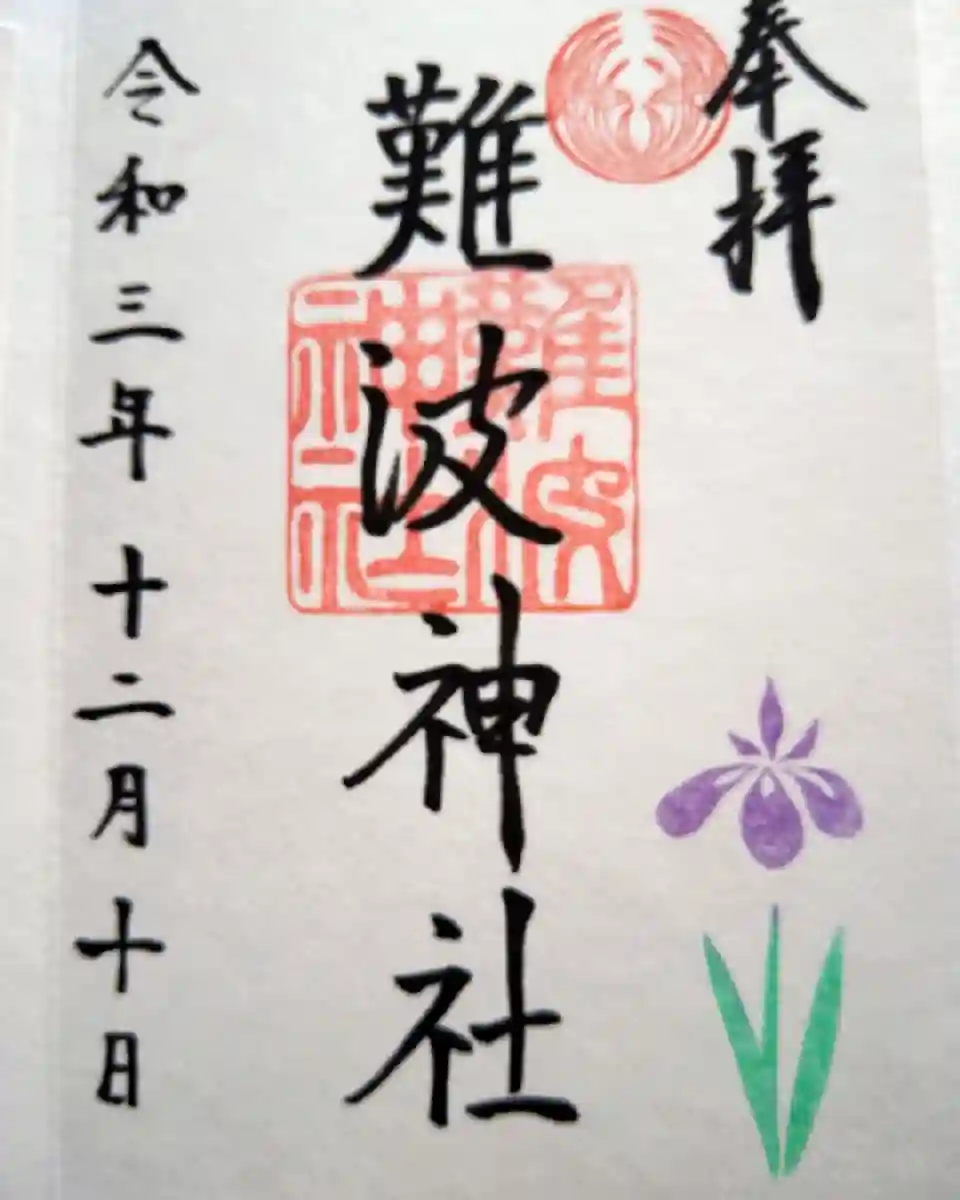 奉拝
難波神社
難波神社
令和三年十二月十日